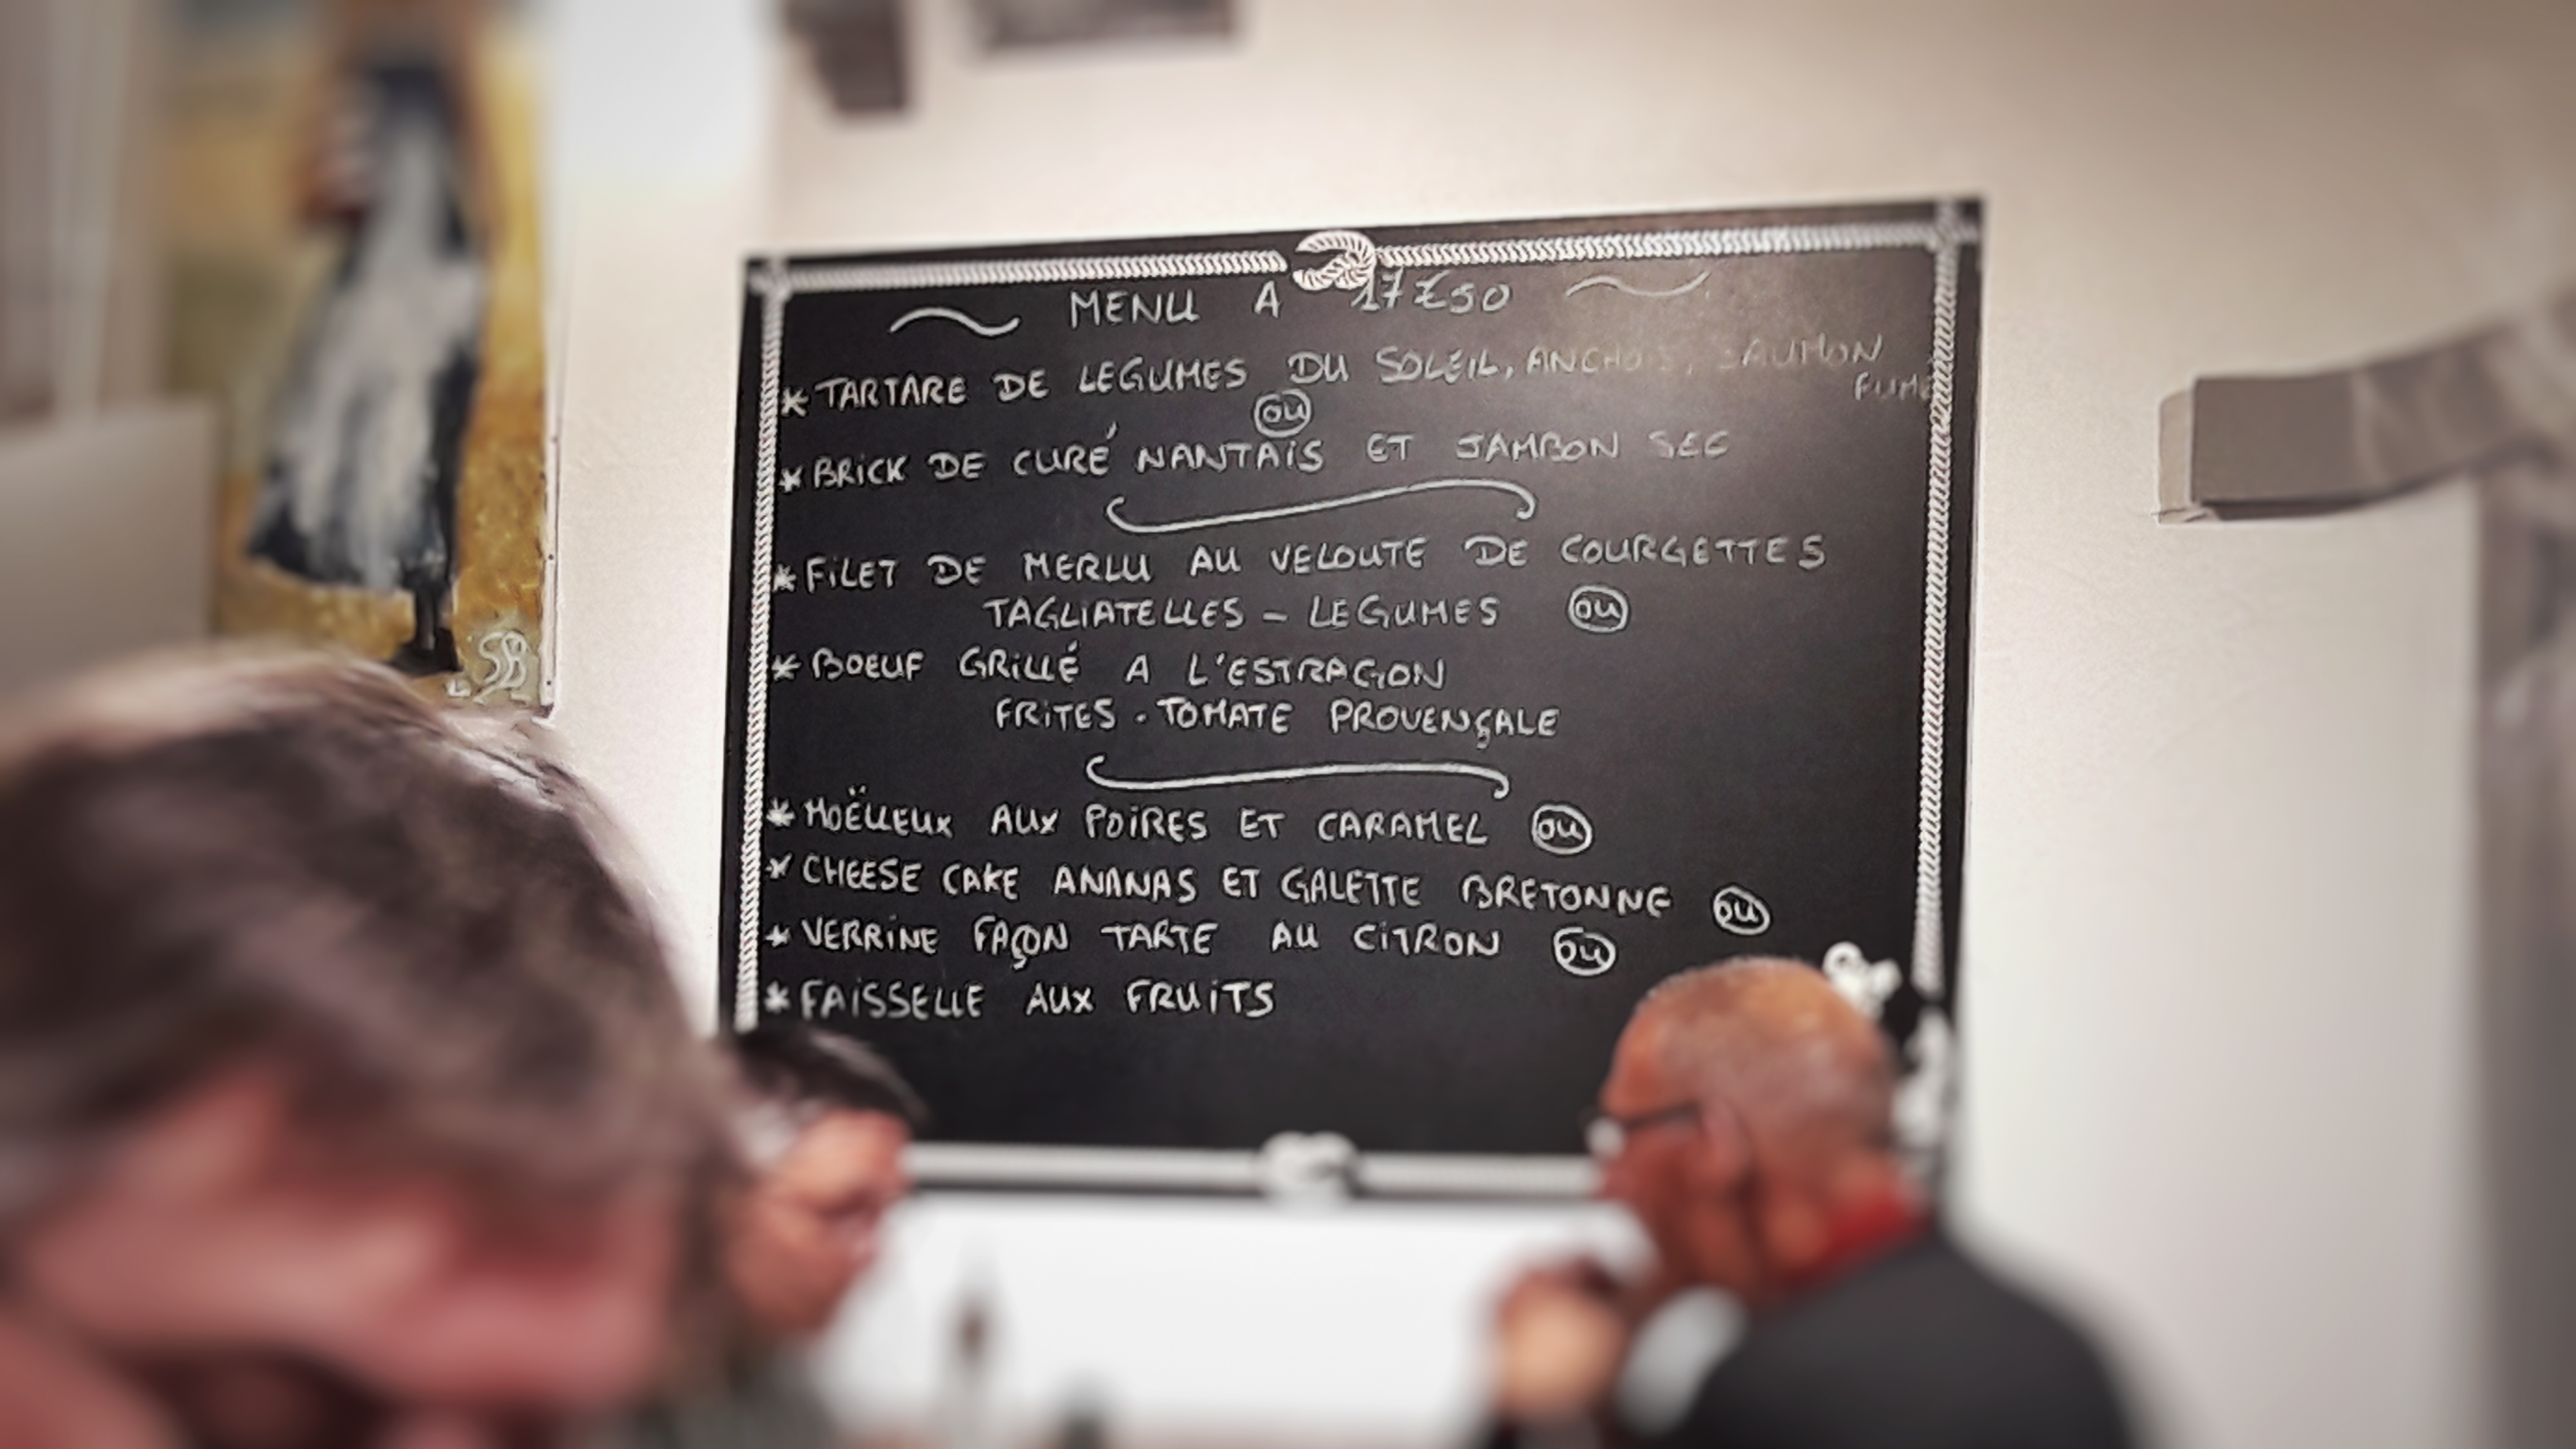 MENU A 17€50
* TARTARE DE LEGUMES DU SOLEIL, ANCHOIS, SAUMON
FUMÉ
OU
* BRICK DE CURÉ NANTAIS ET JAMBON SEC
* FILET DE MERLU AU VELOUTE DE COURGETTES
TAGLIATELLES - LEGUMES OU
* BOEUF GRILLÉ A L'ESTRAGON
FRITES - TOMATE PROVENÇALE
* MOËLLEUX AUX POIRES ET CARAMEL OU
* CHEESE CAKE ANANAS ET GALETTE BRETONNE OU
* VERRINE FAÇON TARTE AU CITRON OU
* FAISSELLE AUX FRUITS